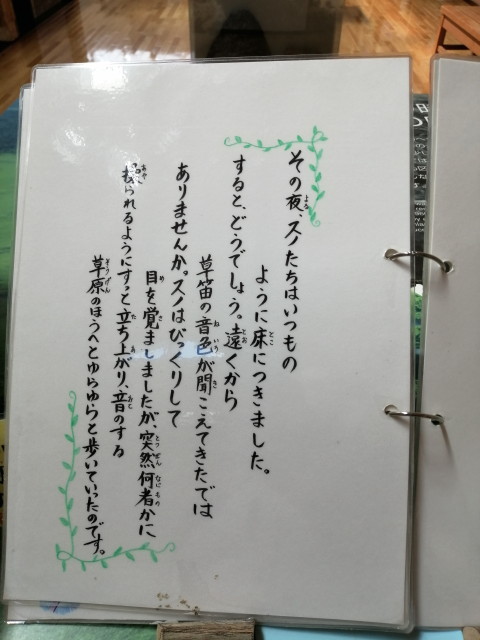 その夜、スノたちはいつもの
ように床につきました。
すると、どうでしょう。遠くから
草笛の音色が聞こえてきたでは
ありませんか。スノはびっくりして
目を覚ましましたが、突然何者かに
操られるようにすっと立ち上がり、音のする
草原のほうへとゆらゆらと歩いていったのです。